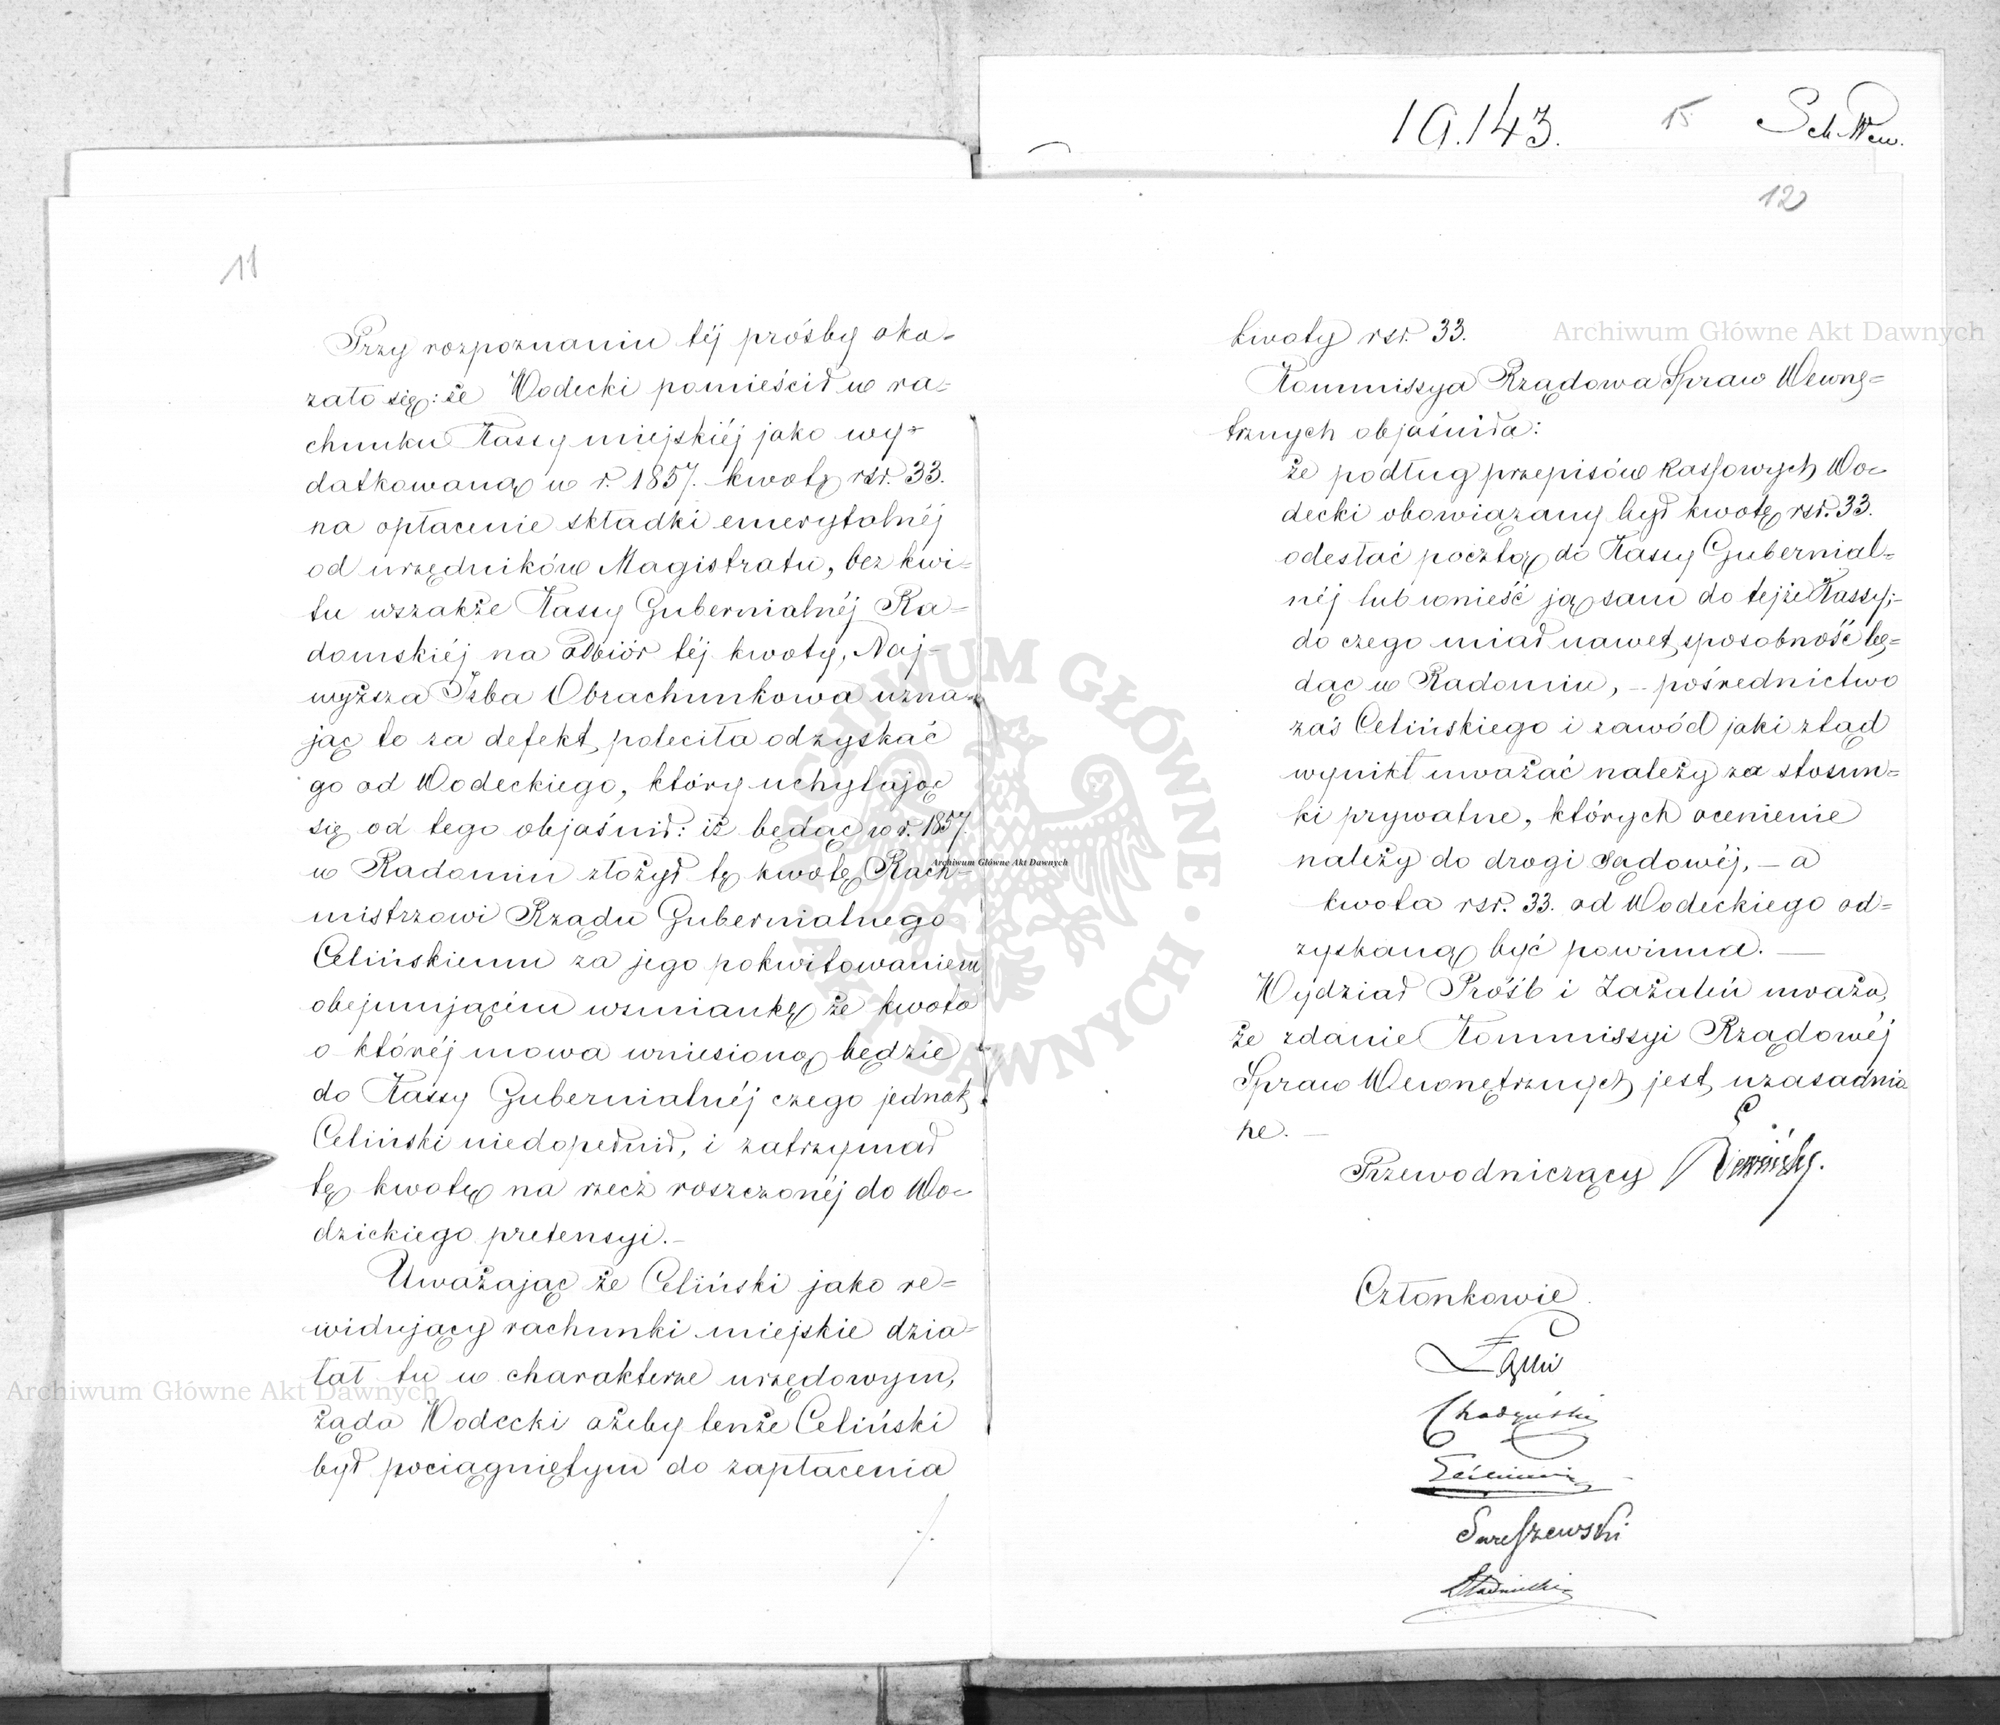 11
Przy rozpoznaniu téj prośby oka-
zało się: że Wodecki pomieścił w ra-
chunku Kassy miejskiéj jako wy-
datkowaną w r. 1857. kwotę rsr. 33.
na opłacenie składki emerytalnéj
od urzędników Magistratu, bez kwi-
tu wszakże Kassy Gubernialnéj Ra-
domskiéj na odbiór téj kwoty, Naj-
wyższa Izba Obrachunkowa uzna-
jąc to za defekt, poleciła odzyskać
go od Wodeckiego, który uchylając
się od tego objaśnił: iż będąc w r. 1857.
w Radomiu złożył tę kwotę Rach-
mistrzowi Rządu Gubernialnego
Celińskiemu za jego pokwitowaniem
obejmującém wzmiankę że kwota
o któréj mowa wniesioną będzie
do Kassy Gubernialnéj czego jednak
Celiński niedopełnił, i zatrzymał
tę kwotę na rzecz roszczonéj do Wo-
dzickiego pretensyi.-
Uważając że Celiński jako re-
widujący rachunki miejskie dzia-
łał tu w charakterze urzędowym,
żąda Wodecki ażeby tenże Celiński
był pociągniętym do zapłacenia
19.143.
15
12
kwoty rsr. 33.
Kommissya Rządowa Spraw Wewnę-
trznych objaśniła:
że podług przepisów kassowych Wo-
decki obowiązany był kwotę rsr. 33.
odesłać pocztą do Kassy Gubernial-
néj lub wnieść ją sam do tejże Kassy;-
do czego miał nawet sposobność bę-
dąc w Radomiu, - pośrednictwo
zaś Celińskiego i zawód jaki ztąd
wynikł uważać należy za stosun-
ki prywatne, których ocenienie
należy do drogi sądowéj, - a
kwota rsr. 33. od Wodeckiego od-
zyskaną być powinna. -
Wydział Próśb i Zażaleń uważa,
że zdanie Kommissyi Rządowéj
Spraw Wewnętrznych jest uzasadnio
ne. -
Przewodniczący
Członkowie
Archiwum Główne Akt Dawnych
Archiwum Główne Akt Dawnych
Archiwum Główne Akt Dawnych
ARCHIWUM GŁÓWNE AKT DAWNYCH